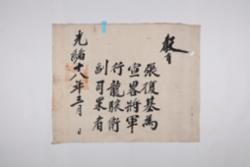 敎旨
張復基爲
宣畧將軍
行龍驤衛
副司果者
光緖十八年三月 日